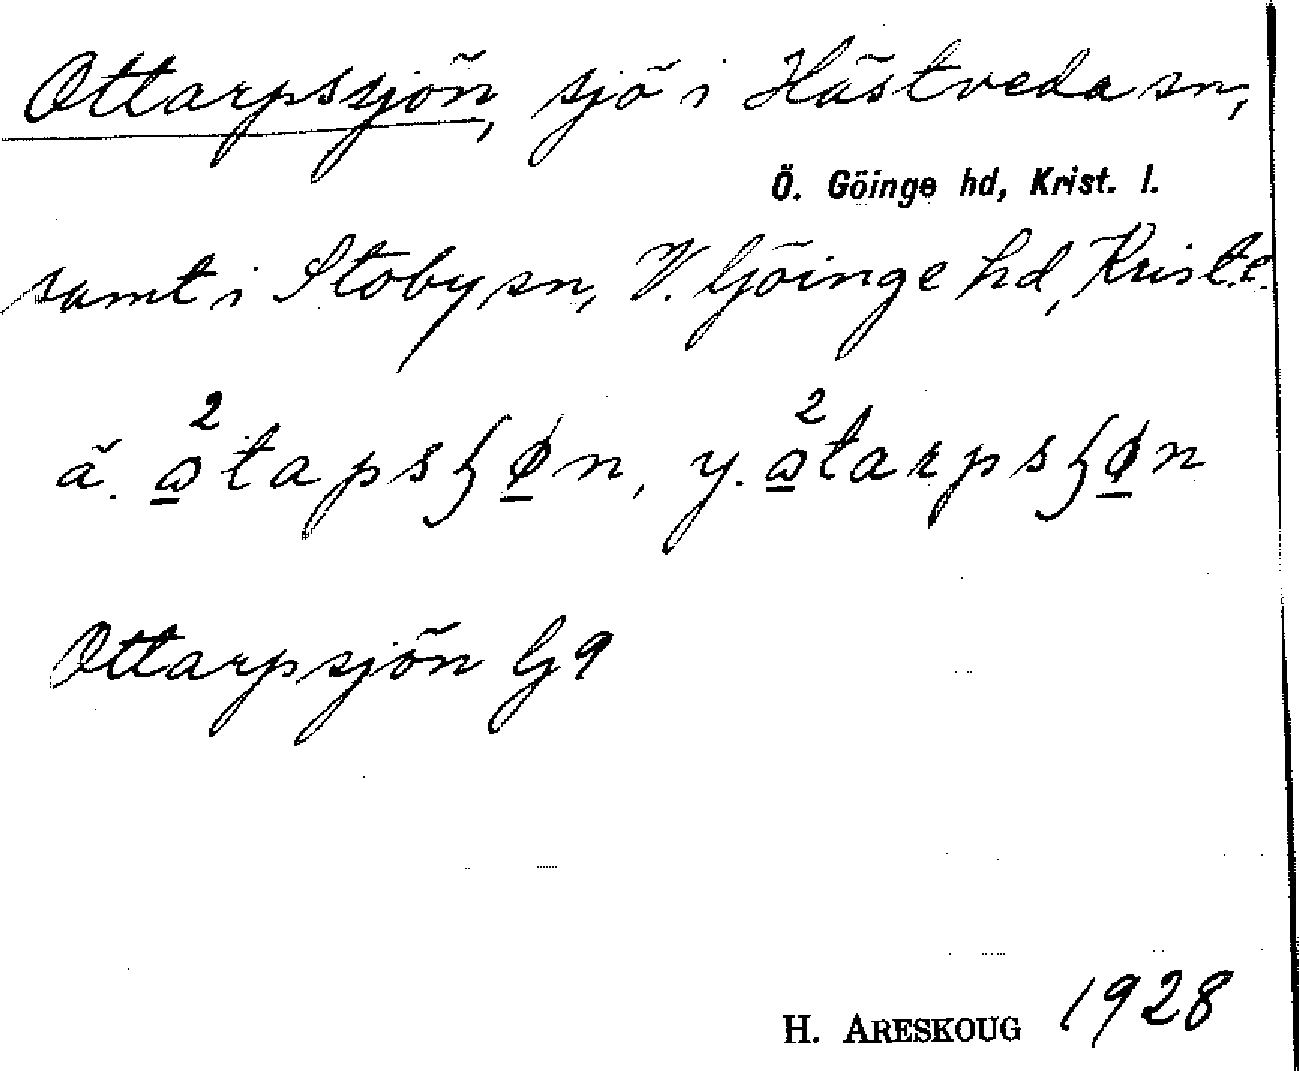 Ottarpssjön, sjö i Hästveda sn,
Ö. Göinge hd, Krist. l.
samt i Stoby sn, V. Göinge hd, Krist. l.
ä. ²ɷtapsʃøn, y. ²ɷtarpsʃøn
Ottarpsjön G9
H. ARESKOUG 1928